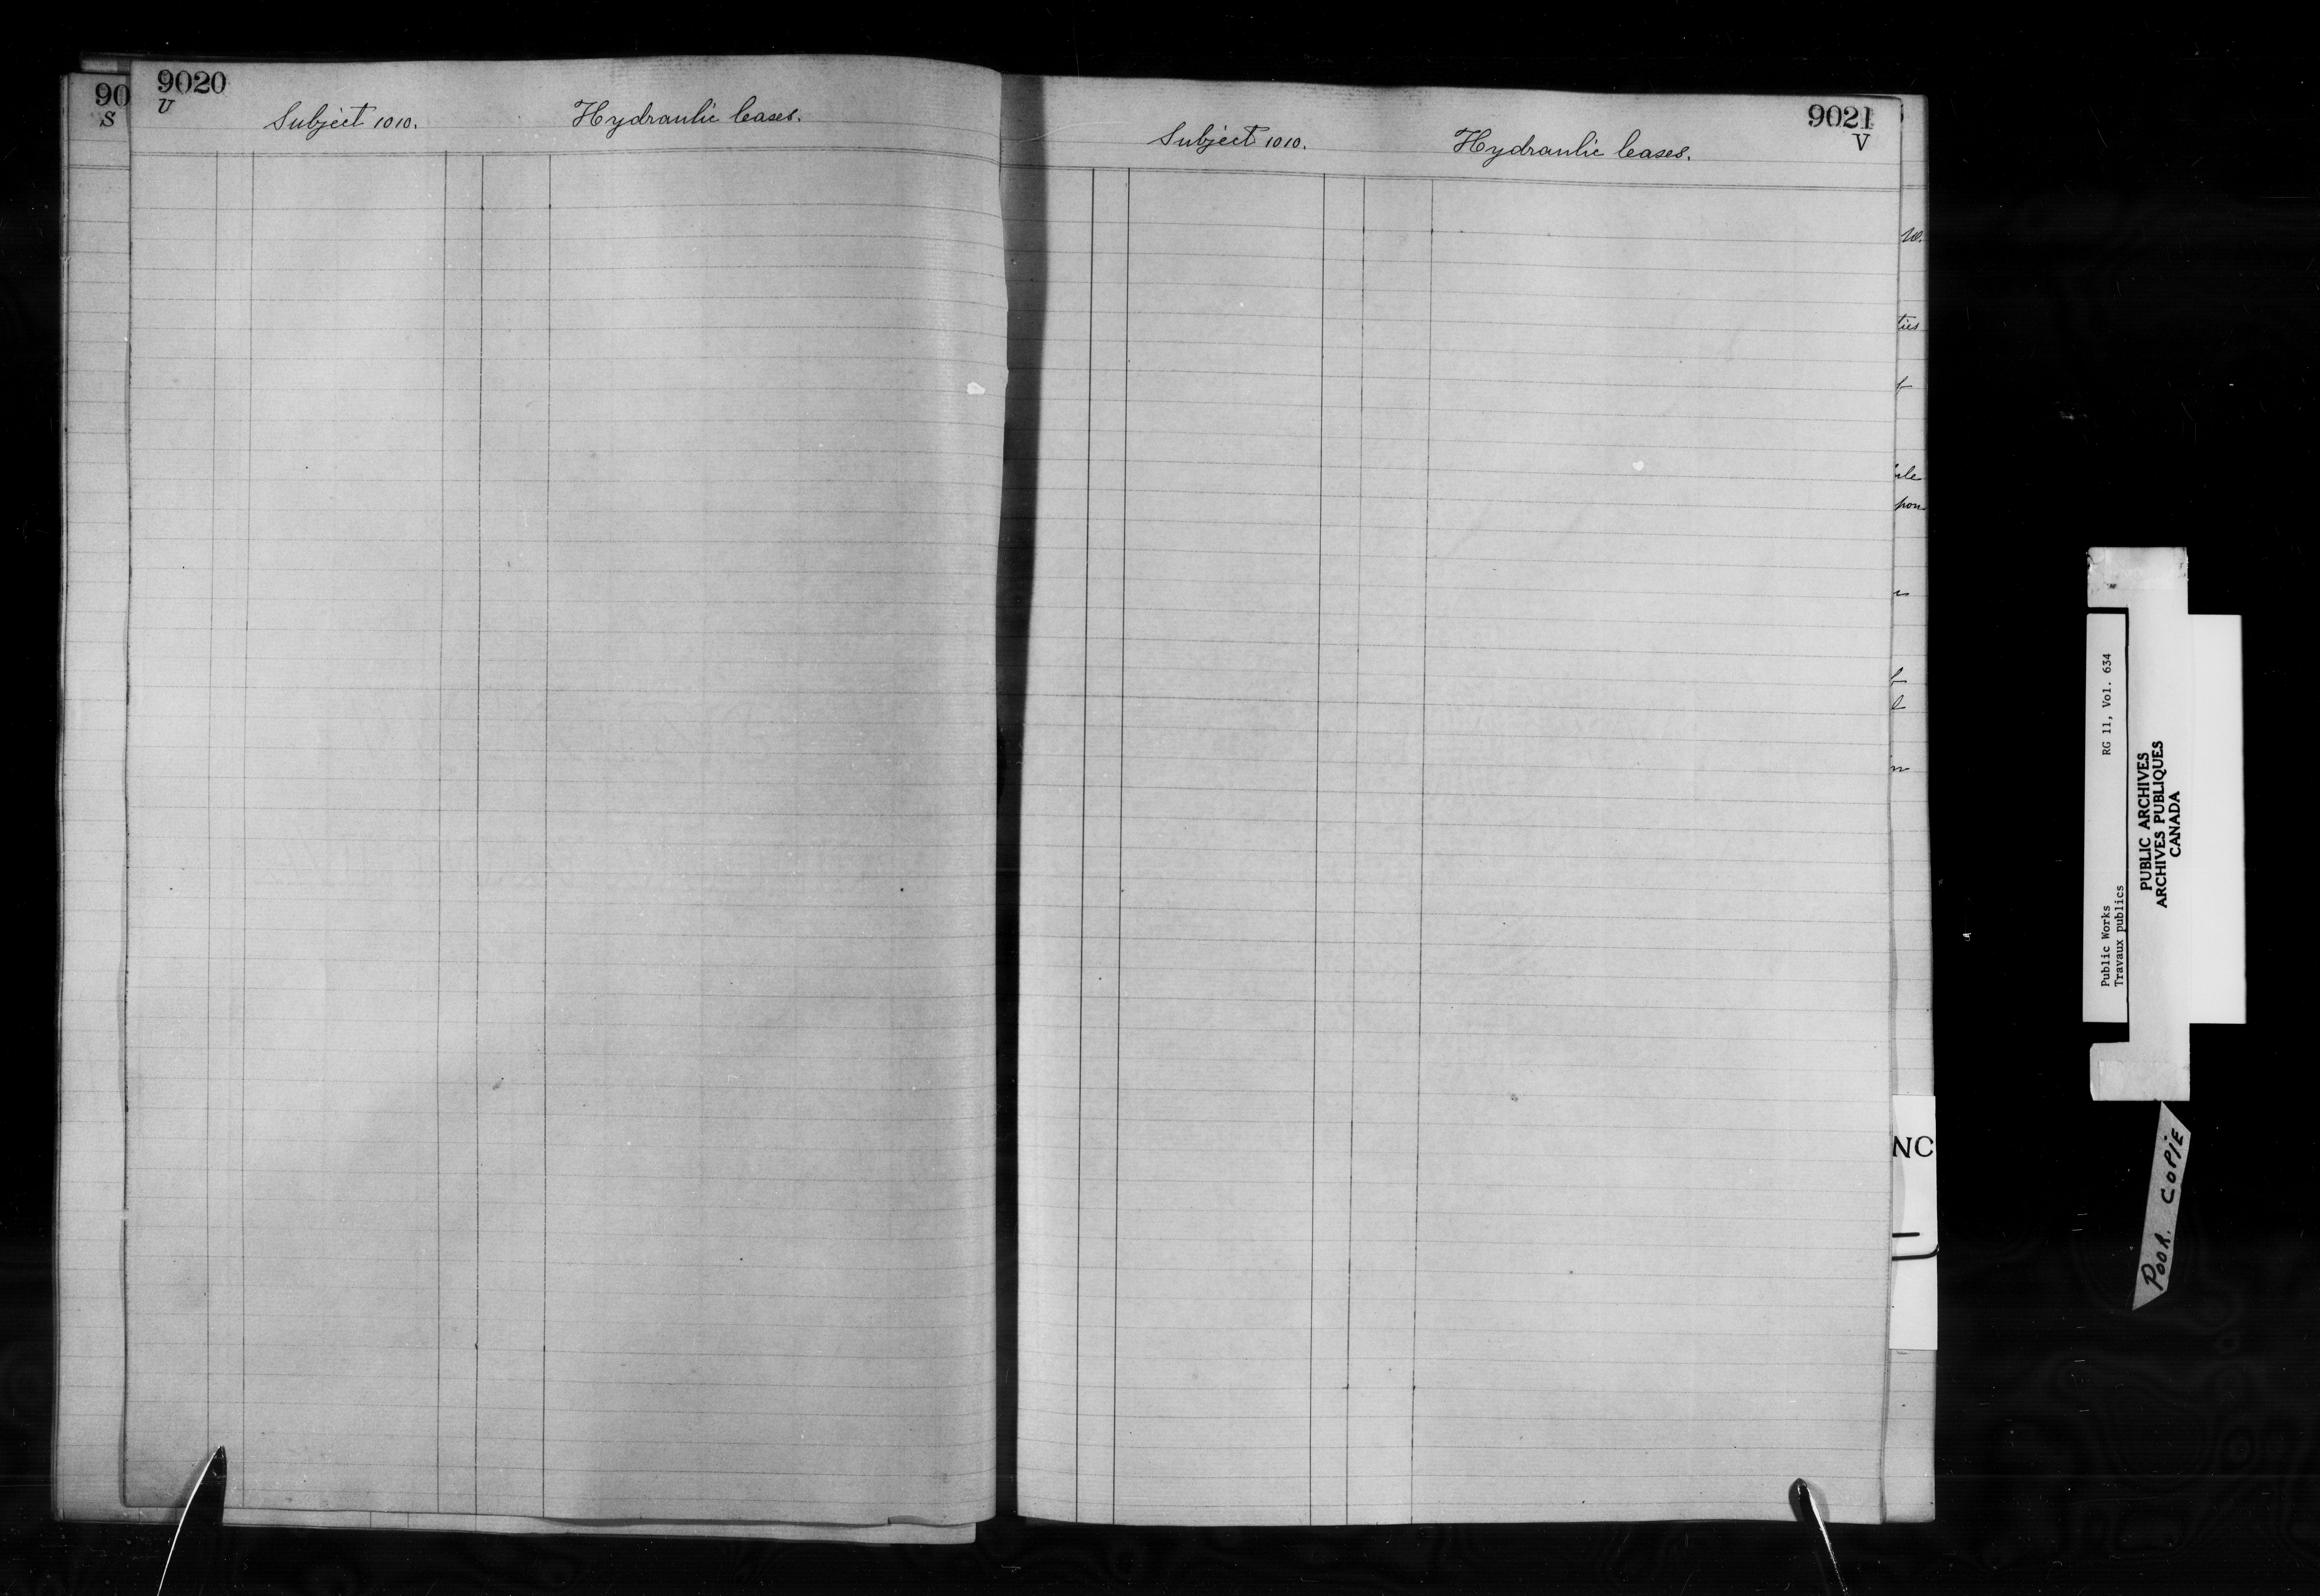 90
S
9020
U
Subject 1010. Hydraulic leases.
9021
V
Subject 1010. Hydraulic leases.
ties
pon
NC
Public Works RG 11, Vol. 634
Travaux publics
PUBLIC ARCHIVES
ARCHIVES PUBLIQUES
CANADA
POOR. COPIE